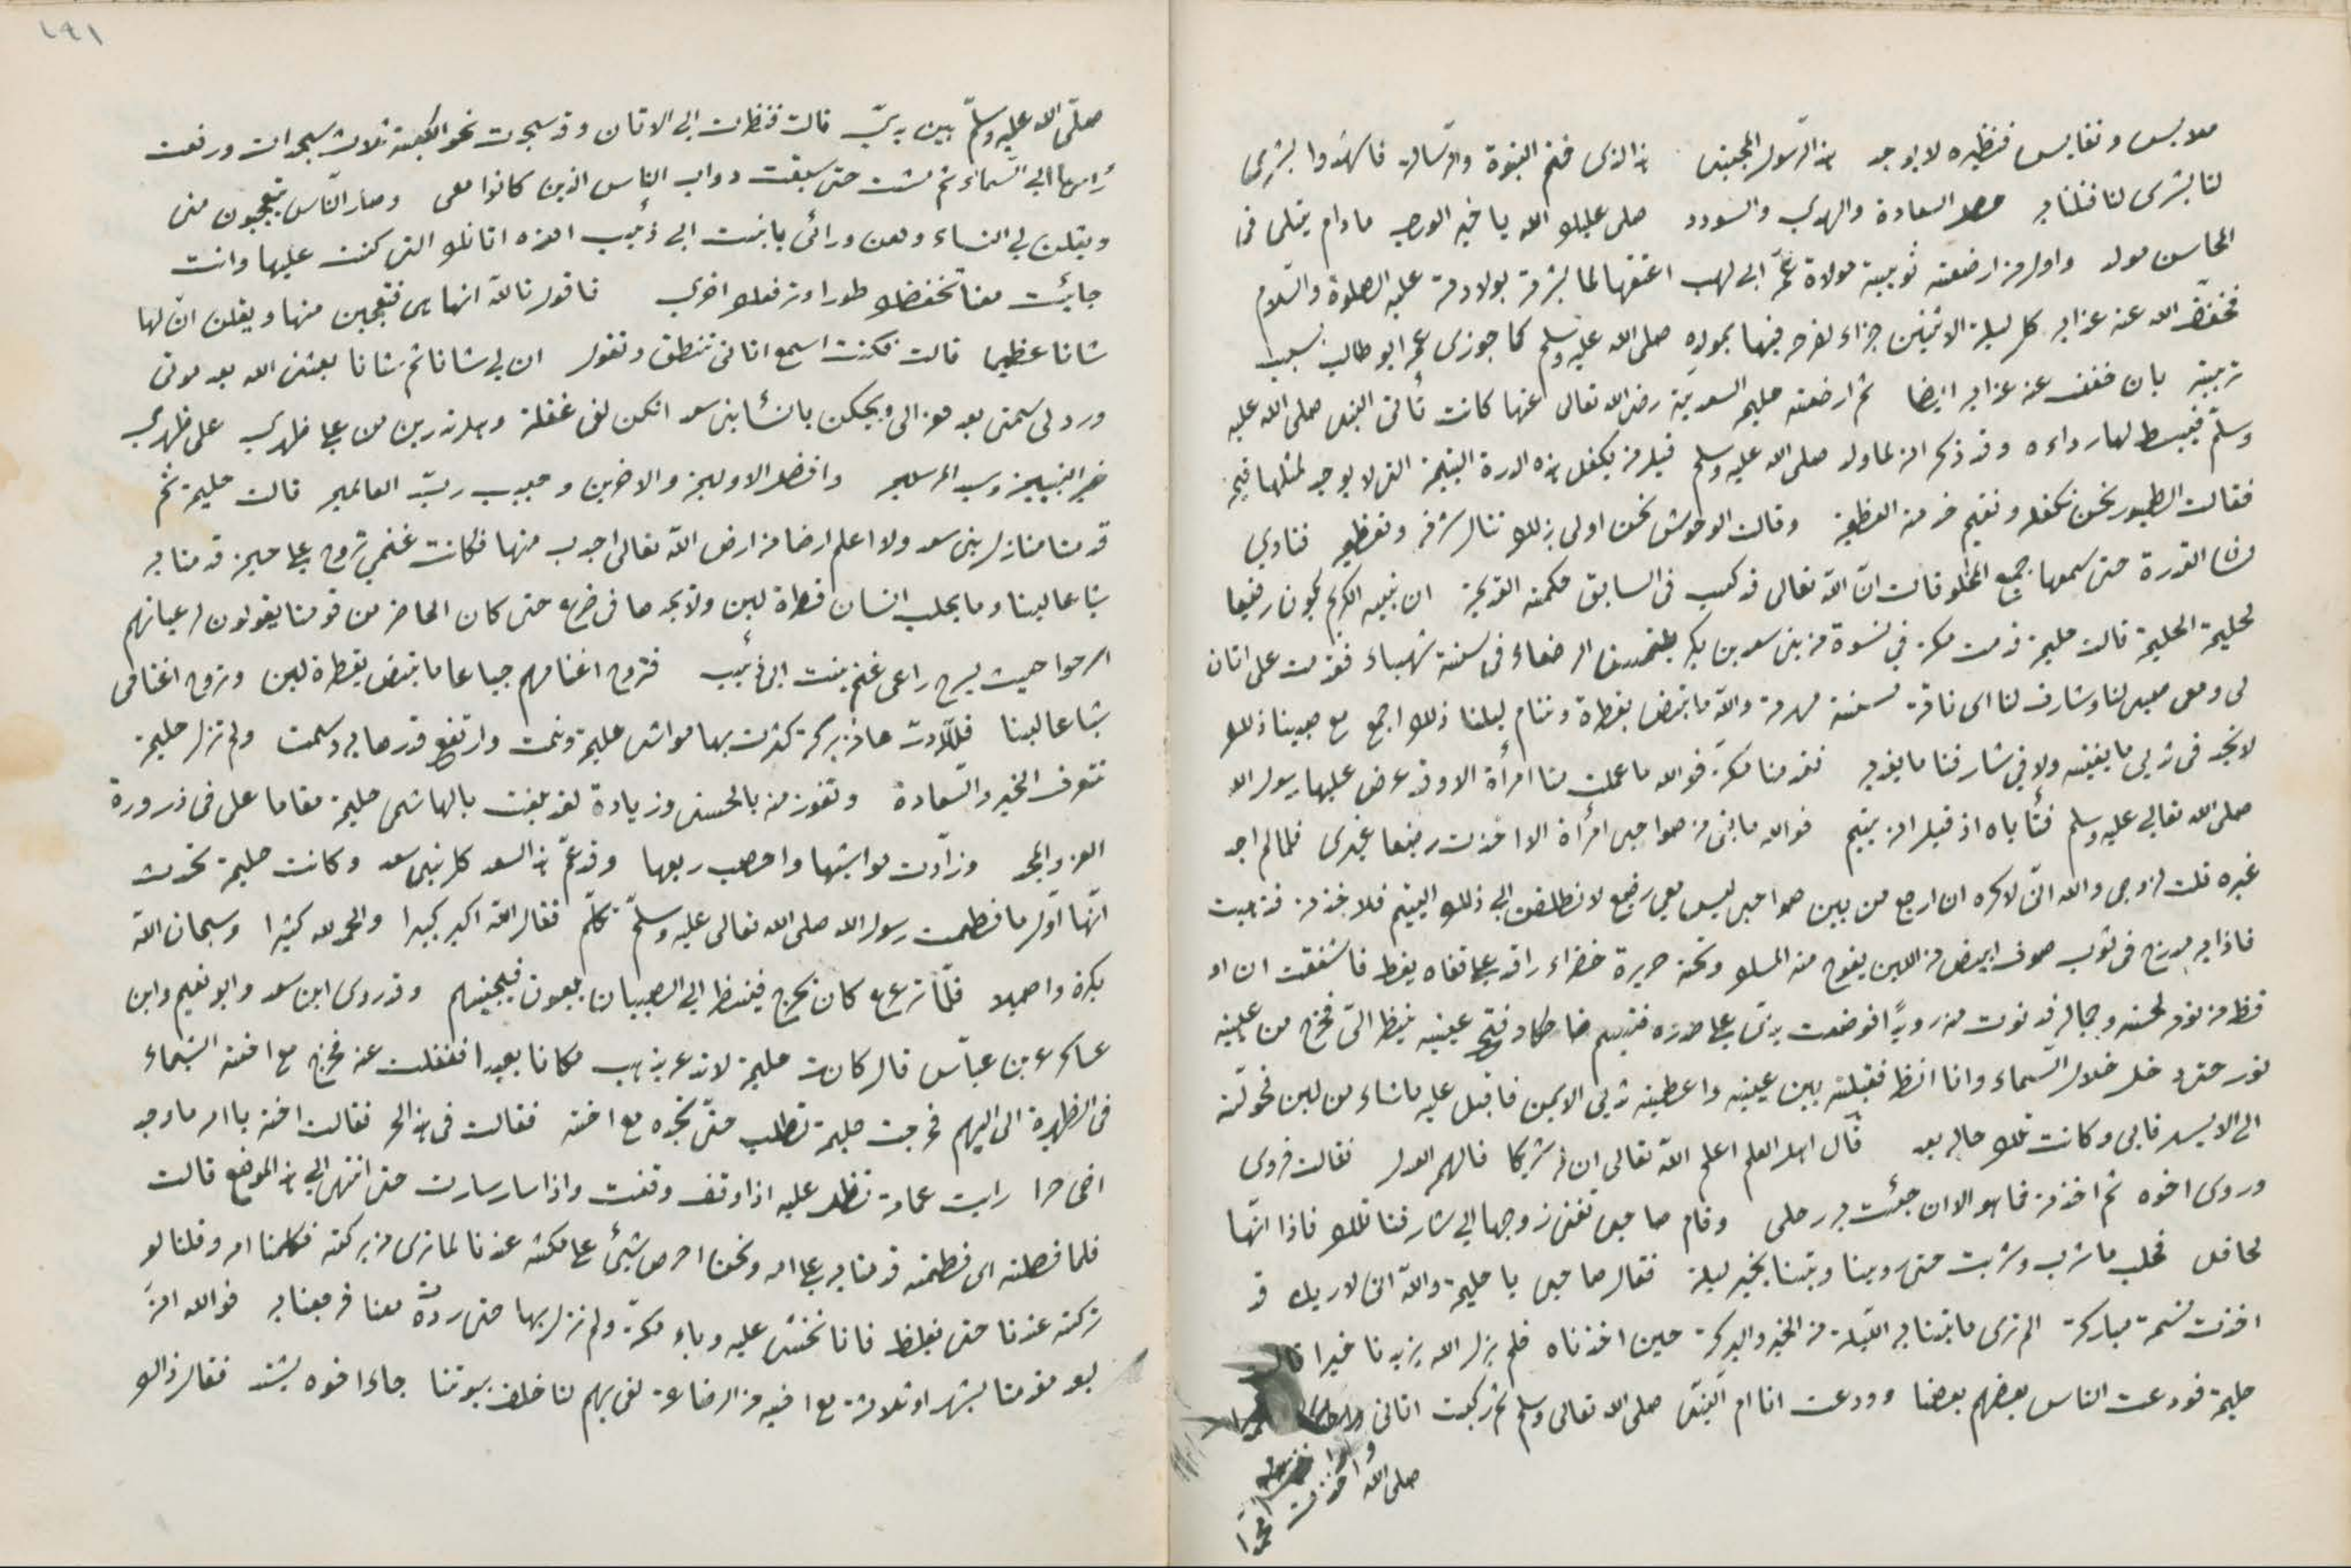 ملابس ونفايس فنظيره لا يوجد هذا الرسول المجتبى هذا الذي ختم النبوة والرسالة فاشهدوا بشرى
لنا بشرى لنا فلنا به حصل السعادة والهدى والسودد صلى عليك الله يا خير الورى مادام يتلى في
المحاسن مولد واول من ارضعته ثويبة مولاة عمه ابي لهب اعتقها لما بشرته بولادته عليه الصلوة والسلام
فخفف الله عنه عذابه كل ليلة الاثنين جزاء لفرحه فيها بمولده صلى الله عليه وسلم كما جوزى عمه ابو طالب بسبب
تربيته بان خفف عنه عذابه ايضا ثم ارضعته حليمة السعدية رضى الله تعالى عنها كانت تأتى النبى صلى الله عليه
وسلم فيبسط لها رداءه وقد ذكر انه لما ولد صلى الله عليه وسلم قيل من يكفل هذه الدرة اليتيمة التى لا يوجد لمثلها قيمة
فقالت الطيور نحن نكفله ونغنم خدمته العظيمة وقالت الوحوش نحن اولى بذلك ننال شرفه وتعظيمه فنادى
لسان القدرة حتى سمعها جميع المخلوقات ان الله تعالى قد كتب فى السابق حكمته القديمة ان نبيه الكريم يكون رضيعا
لحليمة الحليمة قالت حليمة قدمت مكة في نسوة من بنى سعد بن بكر يلتمسن الرضعاء فى سنة شهباء فقدمت على اتان
لى ومعى صبى لنا وشارف لنا اى ناقة مسنة مهزمة والله ما تبض بقطرة وننام ليلنا ذلك اجمع مع صبينا ذلك
لا يجد فى ثديى ما يغنيه ولا في شارفنا ما يغذيه فقدمنا مكة فوالله ما علمت منا امرأة الا وقد عرض عليها رسول الله
صلى الله تعالى عليه وسلم فتأباه اذ قيل انه يتيم فوالله ما بقى من صواحبى امرأة الا اخذت رضيعا غيرى فلما لم اجد
غيره قلت لزوجى والله انى لاكره ان ارجع من بين صواحبى ليس معي رضيع لانطلقن الى ذلك اليتيم فلاخذنه فذهبت
فاذا به مدرج فى ثوب صوف ابيض من اللبن يفوح منه المسك وتحته حريرة خضراء راقد على قفاه يغط فاشفقت ان او
قظه من نومه لحسنه وجماله فدنوت منه رويدا فوضعت يدى على صدره فتبسم ضاحكا وفتح عينيه لينظر الى فخرج من عينيه
نور حتى دخل خلال السماء وانا انظر فقبلته بين عينيه واعطيته ثديى الايمن فاقبل عليه ما شاء من لبن فحولته
الى الايسر فابى وكانت تلك حاله بعد قال اهل العلم اعلمه الله تعالى ان له شريكا فالهمه العدل فقالت فروى
وروى اخوه ثم اخذته فما هو الا ان جئت به رحلى وقام صاحبى تعنى زوجها الى شارفنا تلك فاذا انها
لحافل فحلب ما شرب وشربت حتى روينا وبتنا بخير ليلة فقال صاحبى يا حليمة والله انى لاريك قد
اخذت نسمة مباركة الم ترى ما بتنا به الليلة من الخير والبركة حين اخذناه فلم يزل الله يزيدنا خيرا قالت
حليمة فودعت الناس بعضهم بعضا وودعت انا ام النبى صلى الله تعالى وسلم ثم ركبت اتانى
واخذت محمدا
صلى الله
١٩١
صلى الله عليه وسلم بين يدى قالت فنظرت الى الاتان وقد سجدت نحو الكعبة ثلاث سجدات ورفعت
رأسها الى السماء ثم مشت حتى سبقت دواب الناس الذين كانوا معى وصار الناس يتعجبون منى
ويقلن لى النساء وهن ورائى يا بنت ابى ذئيب اهذه اتانك التى كنت عليها وانت
جايئت معنا تخفضك طورا وترفعك اخرى فاقول تالله انها هى فتعجبن منها ويقلن ان لها
شانا عظيما قالت فكنت اسمع اتانى تنطق وتقول ان لى شانا ثم شانا بعثنى الله بعد موتى
ورد لى سمنى بعد هزالى ويحكن يا نسأ بنى سعد انكن لفى غفلة وهل تدرين من على ظهرى على ظهرى
خير النبيين وسيد المرسلين وافضل الاولين والاخرين وحبيب رب العالمين قالت حليمة ثم
قدمنا منازل بنى سعد ولا اعلم ارضا من ارض الله تعالى اجدب منها فكانت غنمي تروح على حين قدمنا به
شباعا لبنا وما يحلب انسان قطرة لبن ولا يجدها فى ضرع حتى كان الحاضر من قومنا يقولون لرعيانهم
اسرحوا حيث يسرح راعى غنم بنت ابى ذئيب فتروح اغنامهم جياعا ما تبض بقطرة لبن وتروح اغنامى
شباعا لبنا فلله درها من بركة كثرت بها مواشى حليمة ونمت وارتفع قدرها به وسمت ولم تزل حليمة
تتعرف الخير والسعادة وتفوز منه بالحسنى وزيادة لقد بلغت بالهاشمى حليمة مقاما على فى ذروة
العز والمجد وزادت مواشيها واخصب ربعها وقد عم هذا السعد كل بنى سعد وكانت حليمة تحدث
انها اول ما فطمت رسول الله صلى الله تعالى عليه وسلم تكلم فقال الله اكبر كبيرا والحمد لله كثيرا وسبحان الله
بكرة واصيلا فلما ترعرع كان يخرج فينظر الى الصبيان يلعبون فيجتنبهم وقد روى ابن سعد وابو نعيم وابن
عساكر عن ابن عباس قال كانت حليمة لا تدعه يذهب مكانا بعيدا فغفلت عنه فخرج مع اخته الشيماء
فى الظهيرة الى البهم فخرجت حليمة تطلبه حتى تجده مع اخته فقالت فى هذا الحر فقالت اخته يا امه ما وجد
اخى حرا رايت غمامة تظل عليه اذا وقف وقفت واذا سار سارت حتى انتهى الى هذا الموضع قالت
فلما فصلته اى فطمته قدمنا به على امه ونحن احرص شيئ على مكثه عندنا لما نرى من بركته فكلمنا امه وقلنا لو
تركته عندنا حتى يغلظ فانا نخشى عليه وباء مكة ولم نزل بها حتى ردته معنا فرجعنا به فوالله انه
بعد مقدمنا بشهر او ثلاثة مع اخيه من الرضاعة لفى بهم لنا خلف بيوتنا جاءا اخوه يشتد فقال ذاك